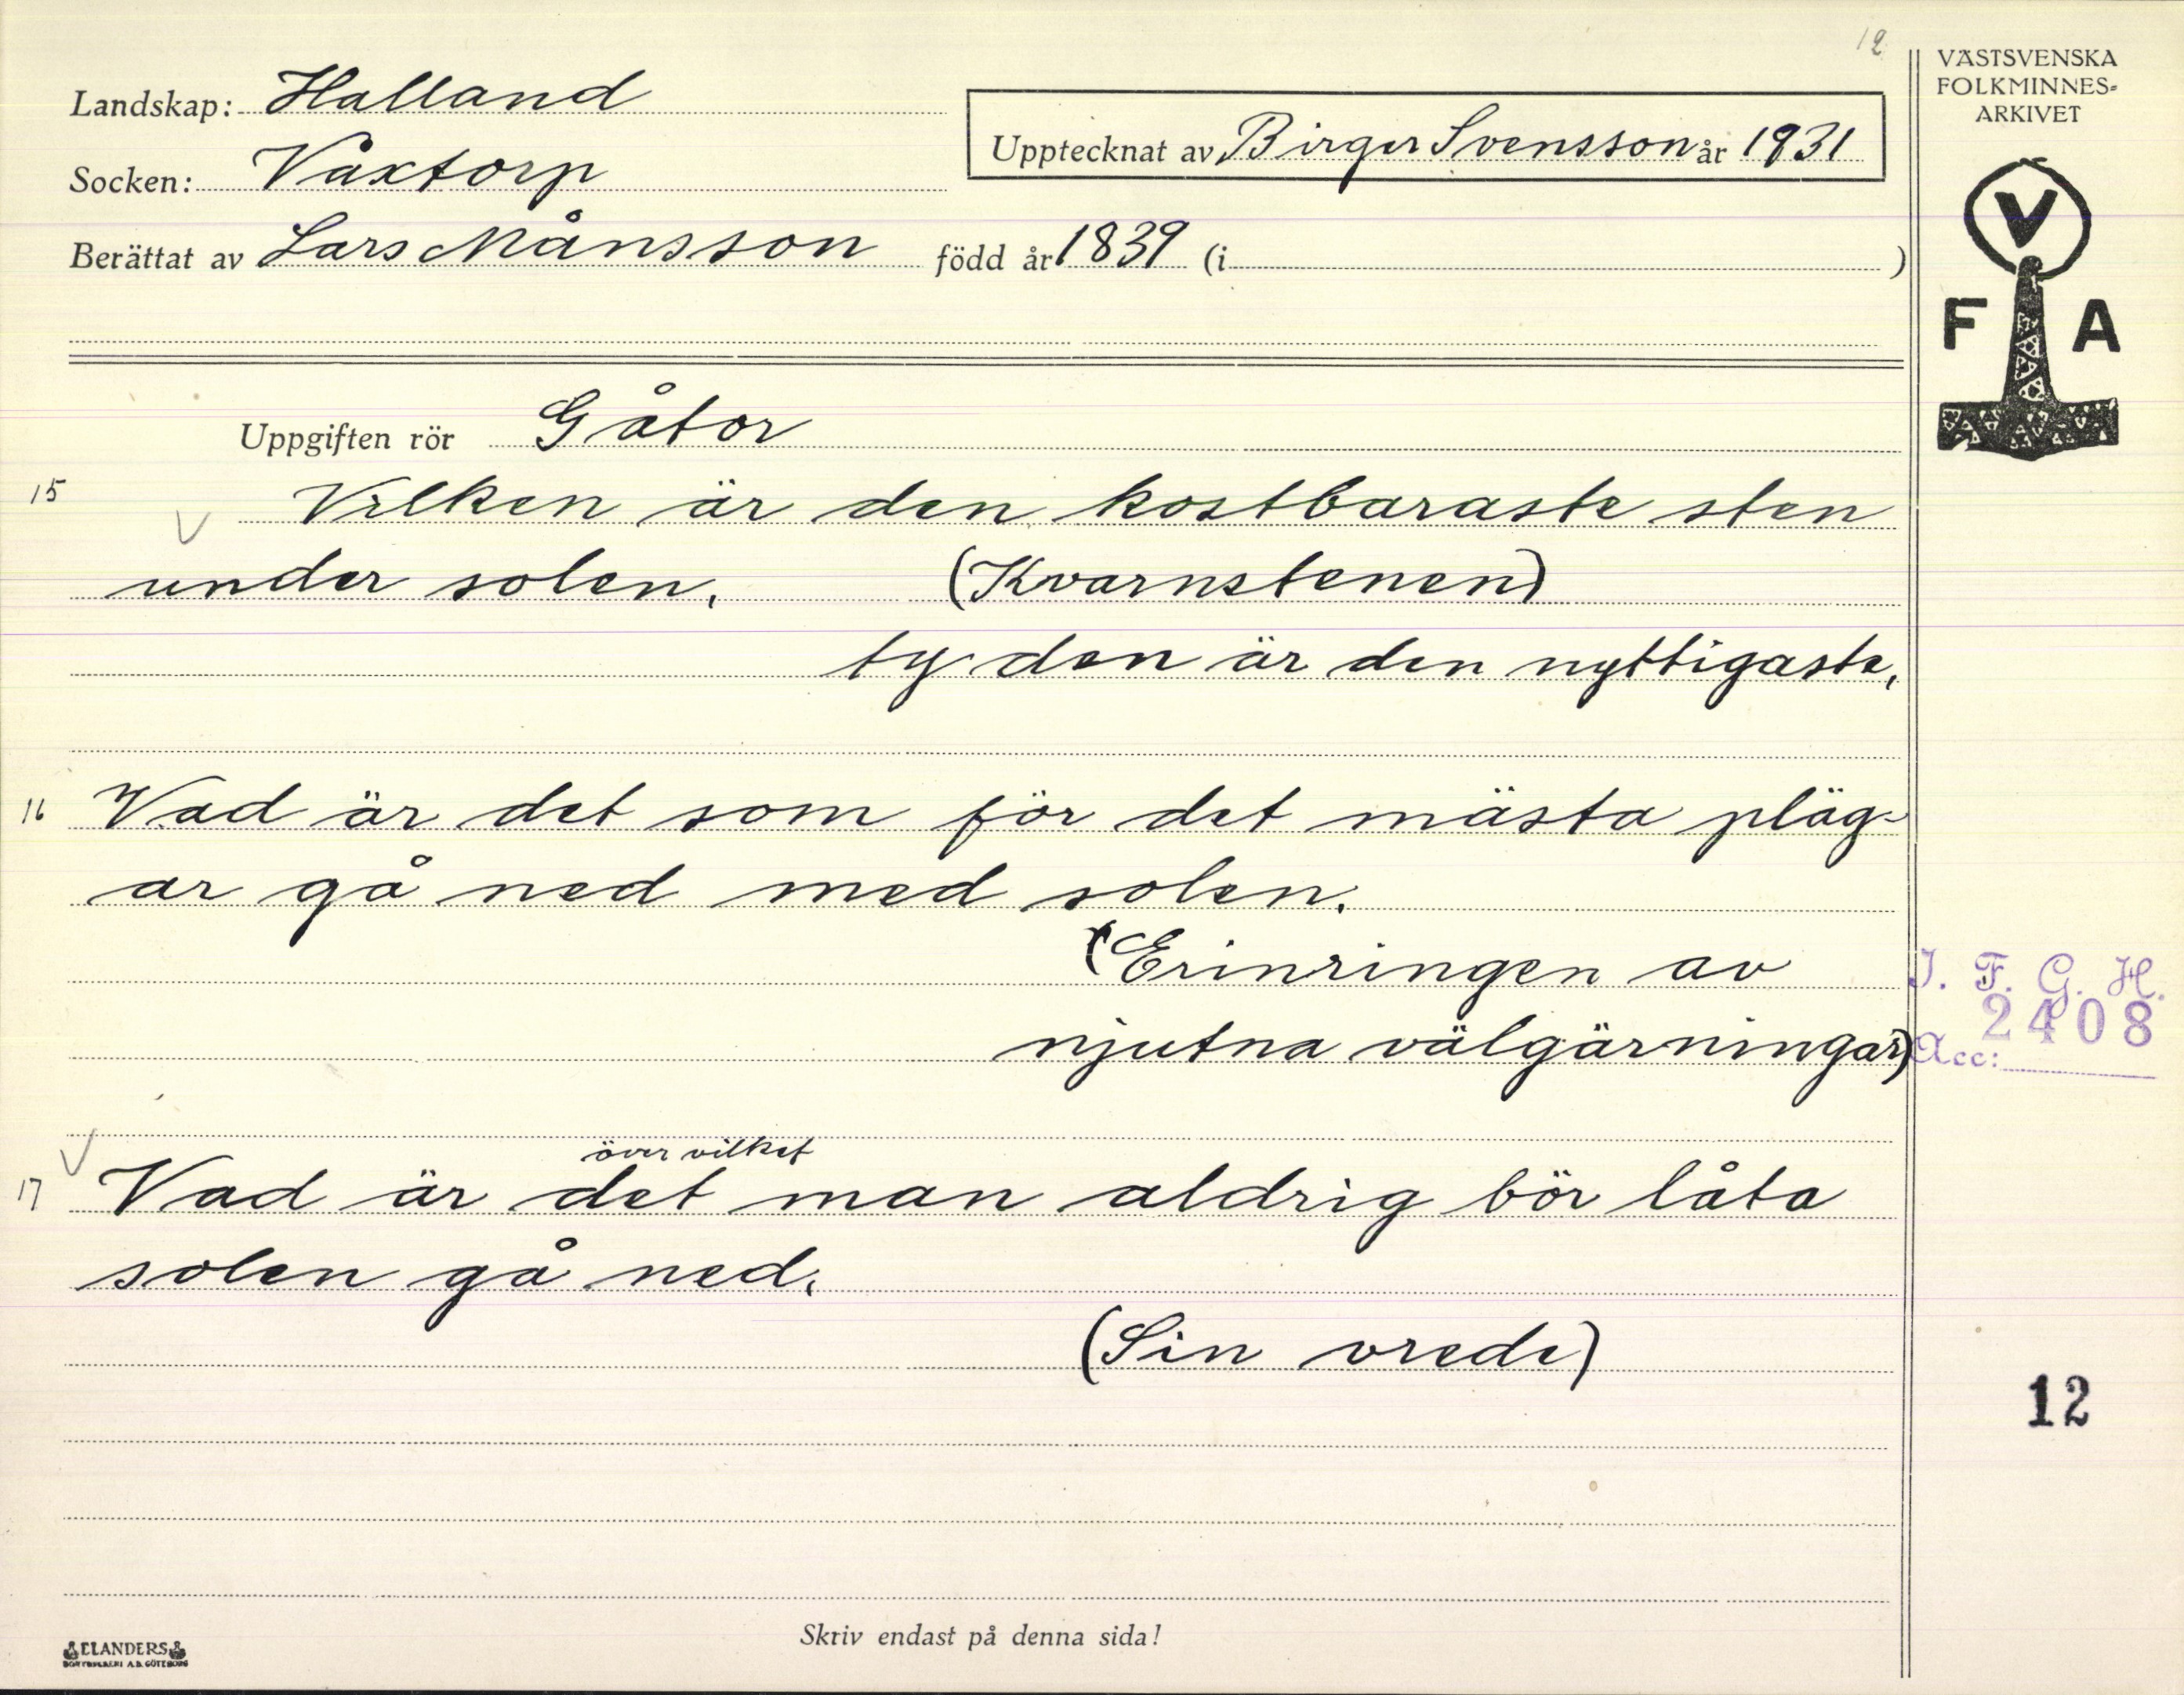 12
VÄSTSVENSKA
FOLKMINNES-
ARKIVET
Landskap: Halland
Upptecknat av Birger Svensson år 1931
Socken: Våxtorp
Berättat av Lars Månsson född år 1839 (i )
V
F A
Uppgiften rör Gåtor
15 Vilken är den kostbaraste sten
under solen. (Kvarnstenen)
ty den är den nyttigaste.
16 Vad är det som för det mästa pläg-
ar gå ned med solen.
(Erinringen av
njutna välgärningar)
I. F. G. H.
2408
Acc:
över vilket
17 Vad är det man aldrig bör låta
solen gå ned.
(Sin vrede)
12
Skriv endast på denna sida!
ELANDERS
BOKTRYCKERI A.B. GÖTEBORG